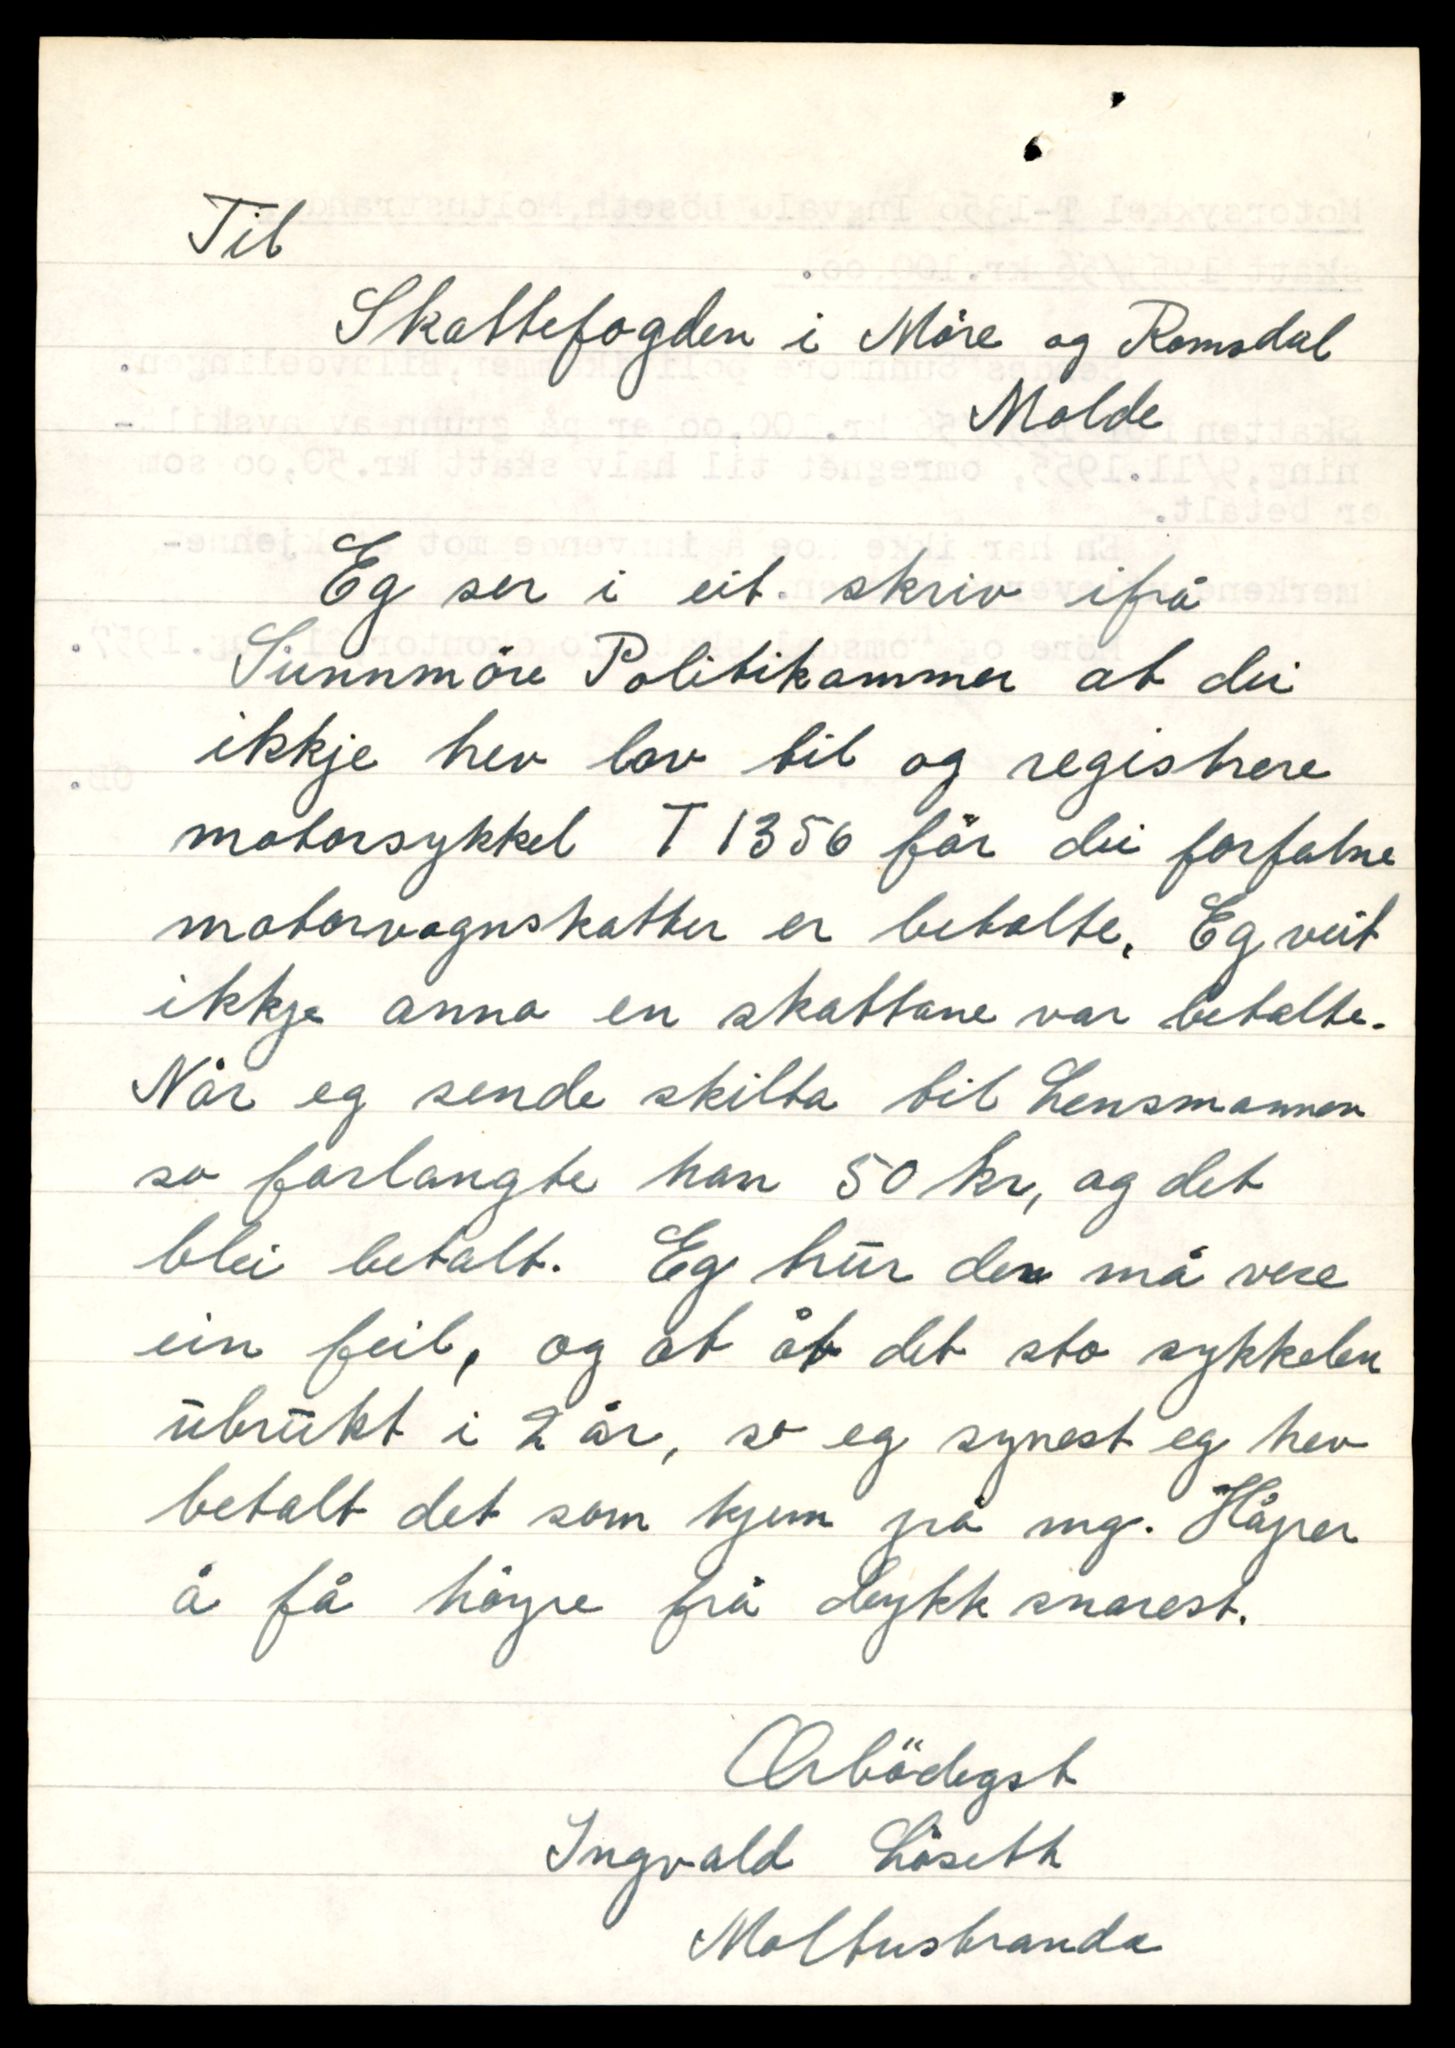 Til
Skattefogden i Möre og Romsdal
Molde
Eg ser i eit skriv ifrå
Sunnmöre Politikammer at dei
ikkje hev lov til og registrere
motorsykkel T 1356 för dei forfalne
motorvognskatter er betalte. Eg veit
ikkje anna en skattane var betalte.
Når eg sende skilta til Lensmannen
so forlangte han 50 kr, og det
blei betalt. Eg trur den må vere
ein feil, og at åt det sto sykkelen
ubrukt i 2 år, so eg synest eg hev
betalt det som kjem på mg. Håper
å få höyre frå dykk snarest.
Ærbödigst
Ingvald Löseth
Moltustranda